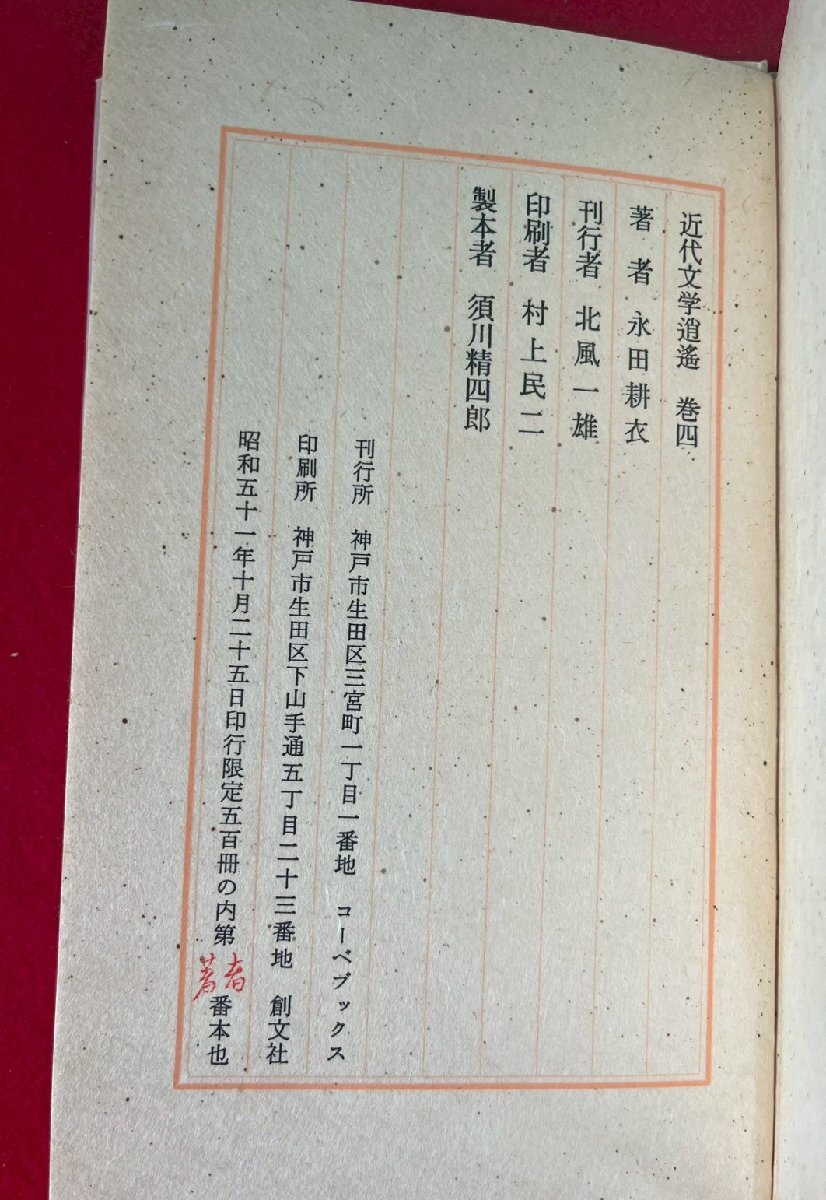 近代文学逍遙　巻四
著　者　永田耕衣
刊行者　北風一雄
印刷者　村上民二
製本者　須川精四郎
刊行所　神戸市生田区三宮町一丁目一番地　コーベブックス
印刷所　神戸市生田区下山手通五丁目二十三番地　創文社
昭和五十一年十月二十五日印行限定五百冊の内第著者番本也